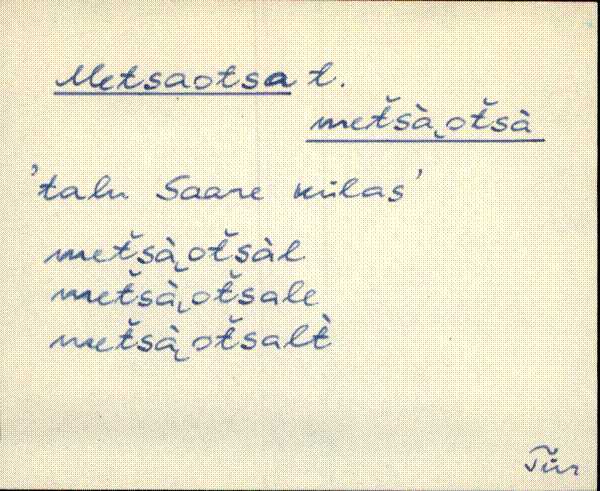 Metsaotsa t.
met̆sà˛ot̆sà
'talu Saare külas'
met̆sà˛ot̆sàl
met̆sà˛ot̆sale
met̆sà˛ot̆salt̀
Tür